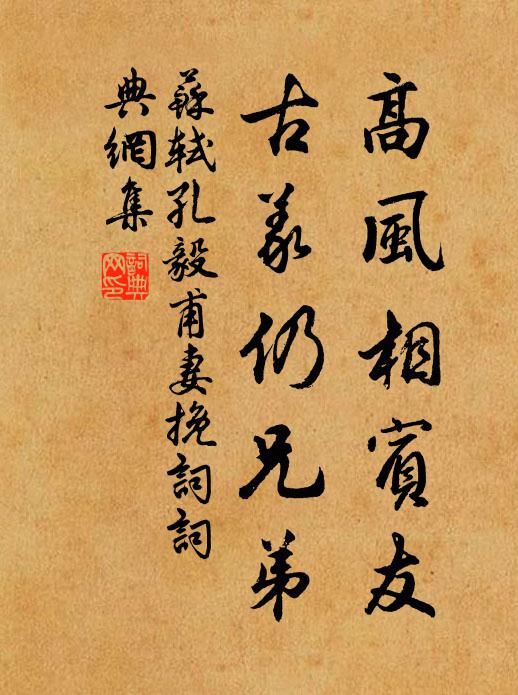 高風相賓友
古義仍兄弟
蘇軾孔毅甫妻挽詞詞
典網集
詞典網印